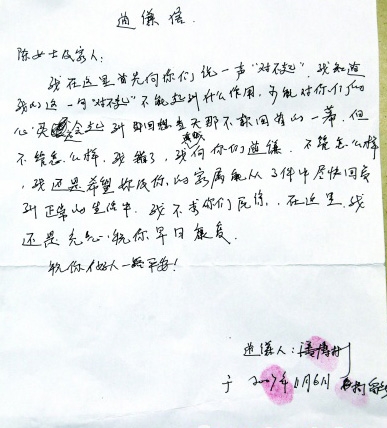 道歉信
陈女士及家人:
我在这里首先向你们说一声“对不起”,我知道
我的这一句“对不起”不能起到什么作用,可能对你们的
心灵会起到那回想当天那不敢回首的一幕,但
不管怎么样,我错了,我真诚向你们道歉,不管怎么样
,我还是希望你及你的家属能从事件中尽快回复
到正常的生活中,我不求你们原谅,在这里,我
还是先祝你早日康复.
祝你们好人一生平安!
道歉人:
于2007年11月6日